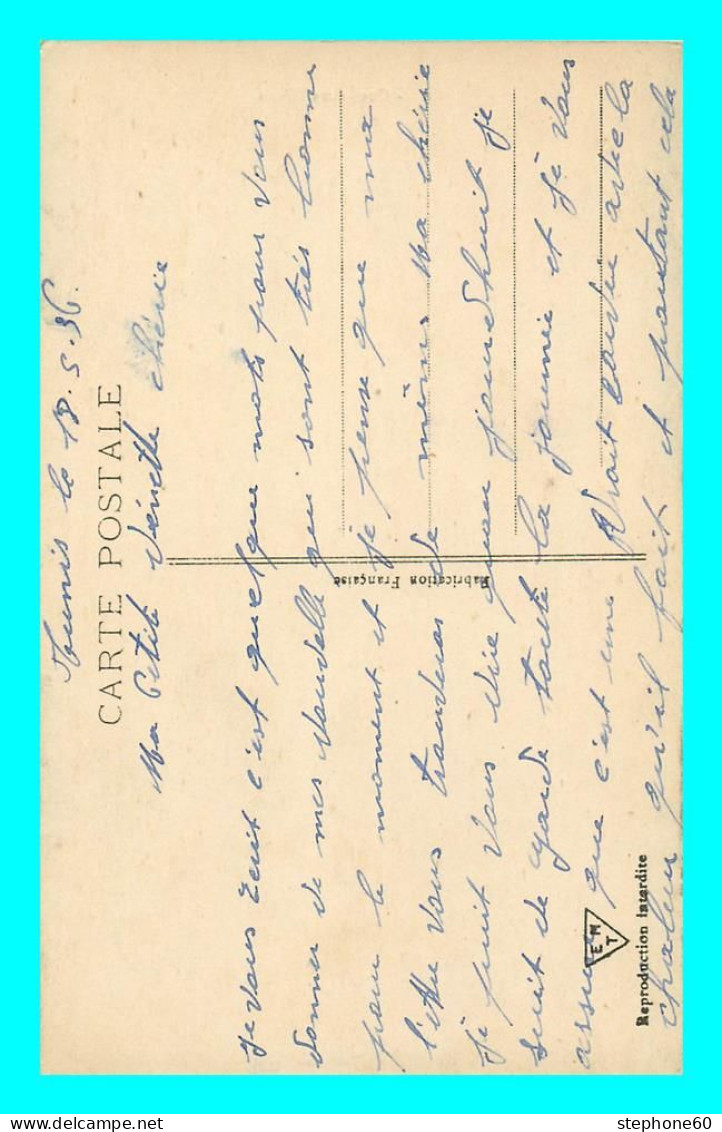 Tunis le 18.5.36.
CARTE POSTALE
Ma Petite chérie
Je vous ecrit c'est quelque mots pour vous
donner de mes nouvelle qui sont très bonne
pour le moment et je pense que ma
lettre vous trouveras de même Ma chérie
je puit vous dire quau jourdhuit je
suit de garde toute la journée et je vous
assure que c'est une avec la
chaleur qu'il fait et pourtant cela
Fabrication Française
EMT
Reproduction interdite
stephone60